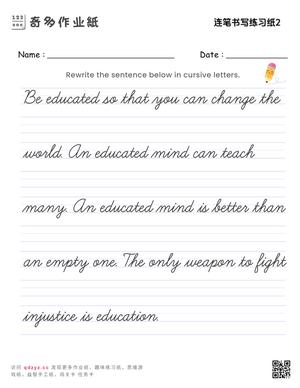 奇多作业紙
连笔书写练习纸2
Name :
Date :
Rewrite the sentence below in cursive letters.
Be educated so that you can change the
world. An educated mind can teach
many. An educated mind is better than
an empty one. The only weapon to fight
injustice is education.
访问 qdayz.cc 发现更多作业纸、趣味练习纸、思维游
戏纸、益智手工纸、闯关卡 任务卡